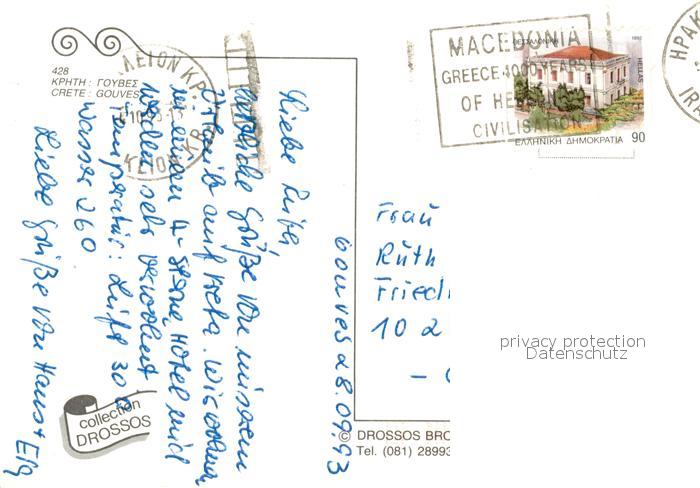 428
ΚΡΗΤΗ : ΓΟΥΒΕΣ
CRETE : GOUVES
Gouves 28.09.93
Liebe Ruth
herzliche Grüße von unserem
Urlaub auf Kreta. Wir wohnen
in einem 4-Sterne Hotel und
werden sehr verwöhnt.
Temperatur: Luft 30
Wasser 26°
Liebe Grüße von Hans +
collection
DROSSOS
© DROSSOS BRO
Tel. (081) 28993
MACEDONIA
GREECE 4000 YEARS
OF HELLENIC
CIVILISATION
1992
HELLAS
ΕΛΛΗΝΙΚΗ ΔΗΜΟΚΡΑΤΙΑ 90
ΗΡΑΚ
IRA
ΚΛΕΙΟΝ ΚΡ
Frau
Ruth
Friedr
10 2
privacy protection
Datenschutz